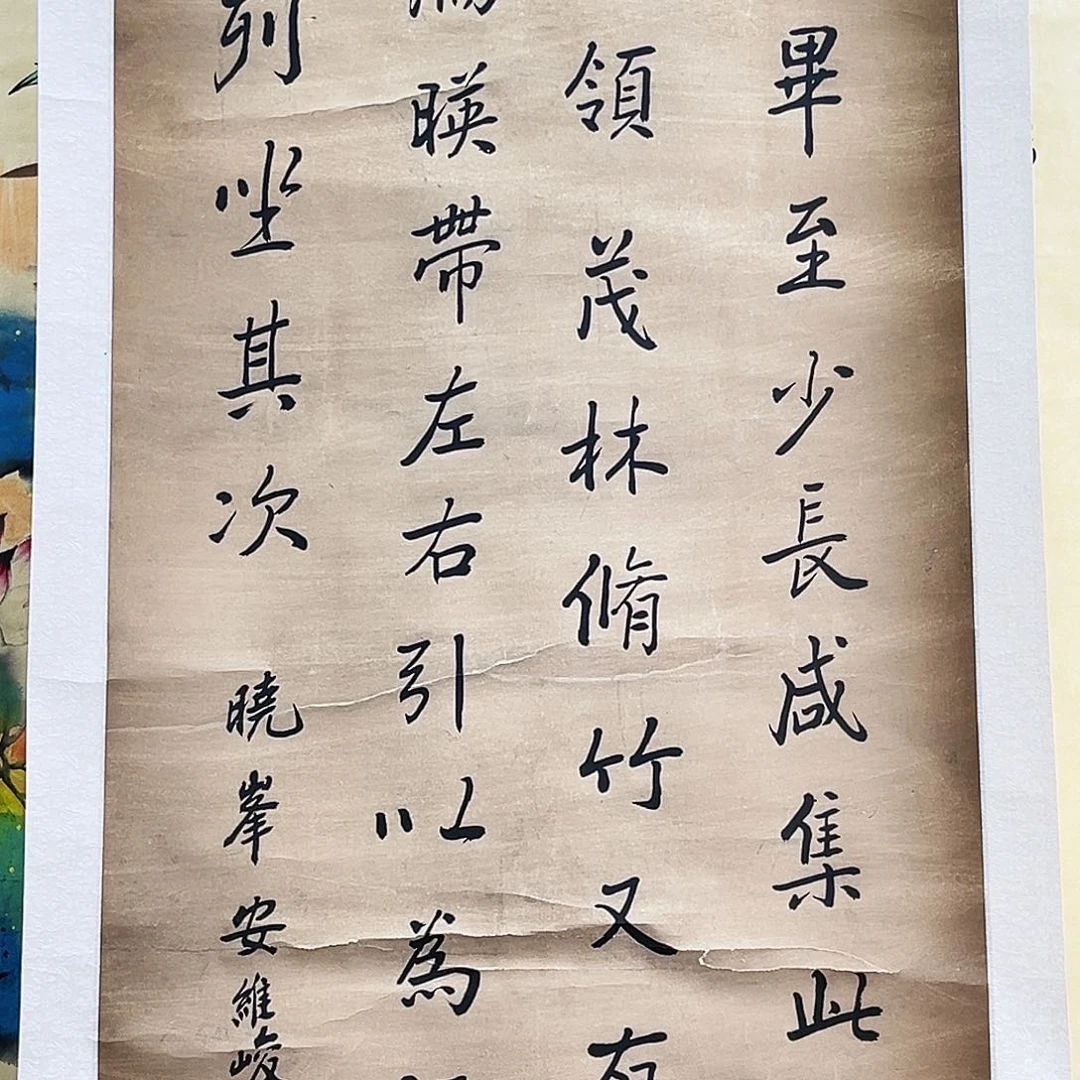 畢至少長咸集此
領茂林脩竹又有
暎帶左右引以為
列坐其次
曉峯安維峻